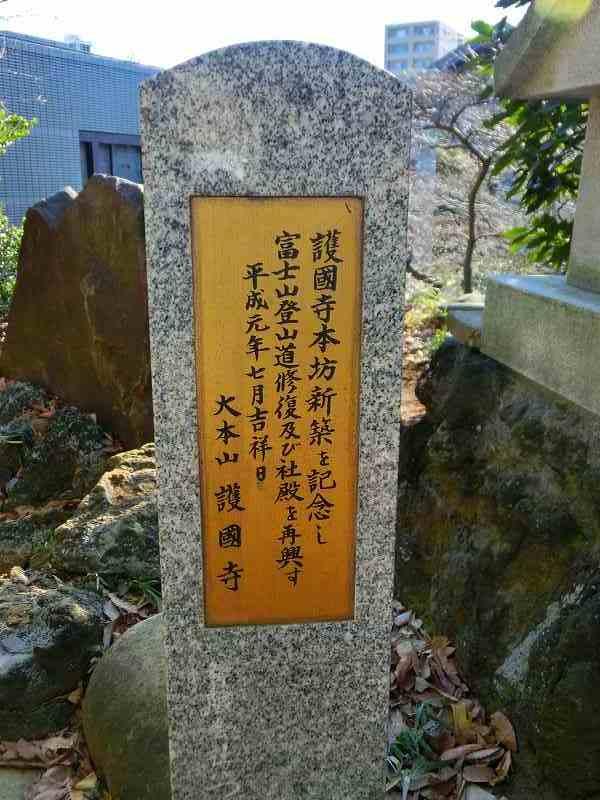 護國寺本坊新築を記念し
富士山登山道修復及び社殿を再興す
平成元年七月吉祥日
大本山護國寺